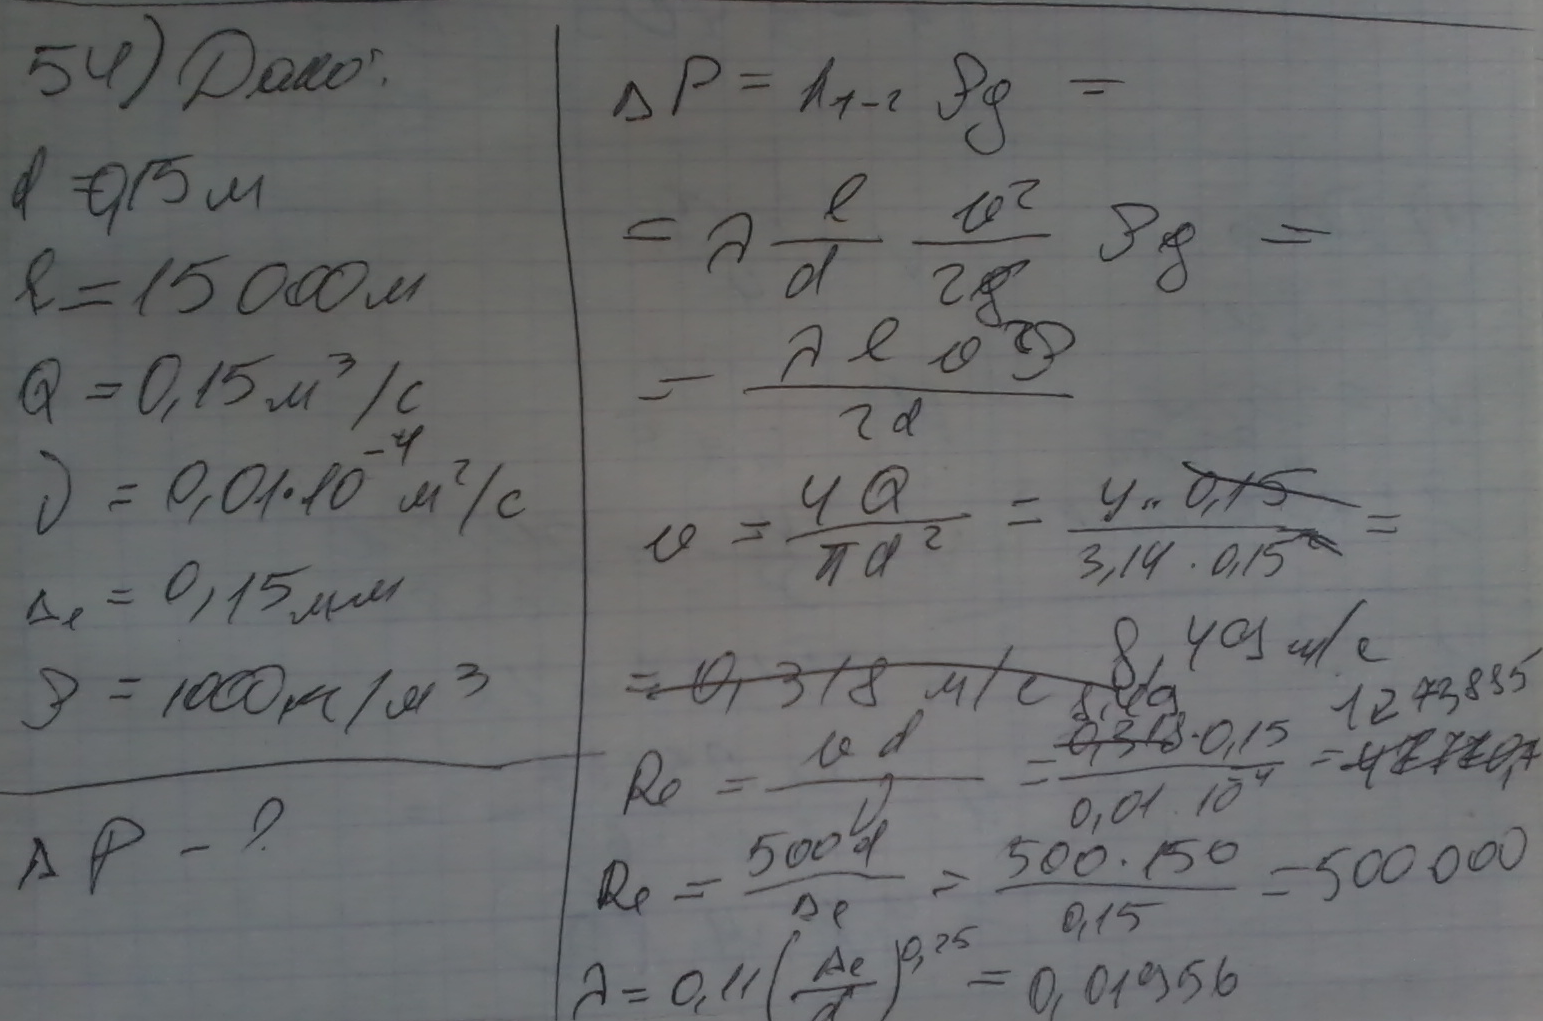 54) Дано:
d = 0,15 м
l = 15 000 м
Q = 0,15 м³/с
ν = 0,01·10⁻⁴ м²/с
Δe = 0,15 мм
ρ = 1000 кг/м³
ΔP - ?
ΔP = h₁₋₂ ρg =
= λ l/d v²/2g ρg =
= λ l v² ρ / 2d
v = 4Q / πd² = 4·0,15 / 3,14·0,15² =
= 0,318 м/с 8,49 м/с
Re = vd / ν = 0,318 8,49·0,15 / 0,01·10⁻⁴ = 47770,7 1273885
Re = 500d / Δe = 500·150 / 0,15 = 500 000
λ = 0,11 (Δe / d)^0,25 = 0,01956